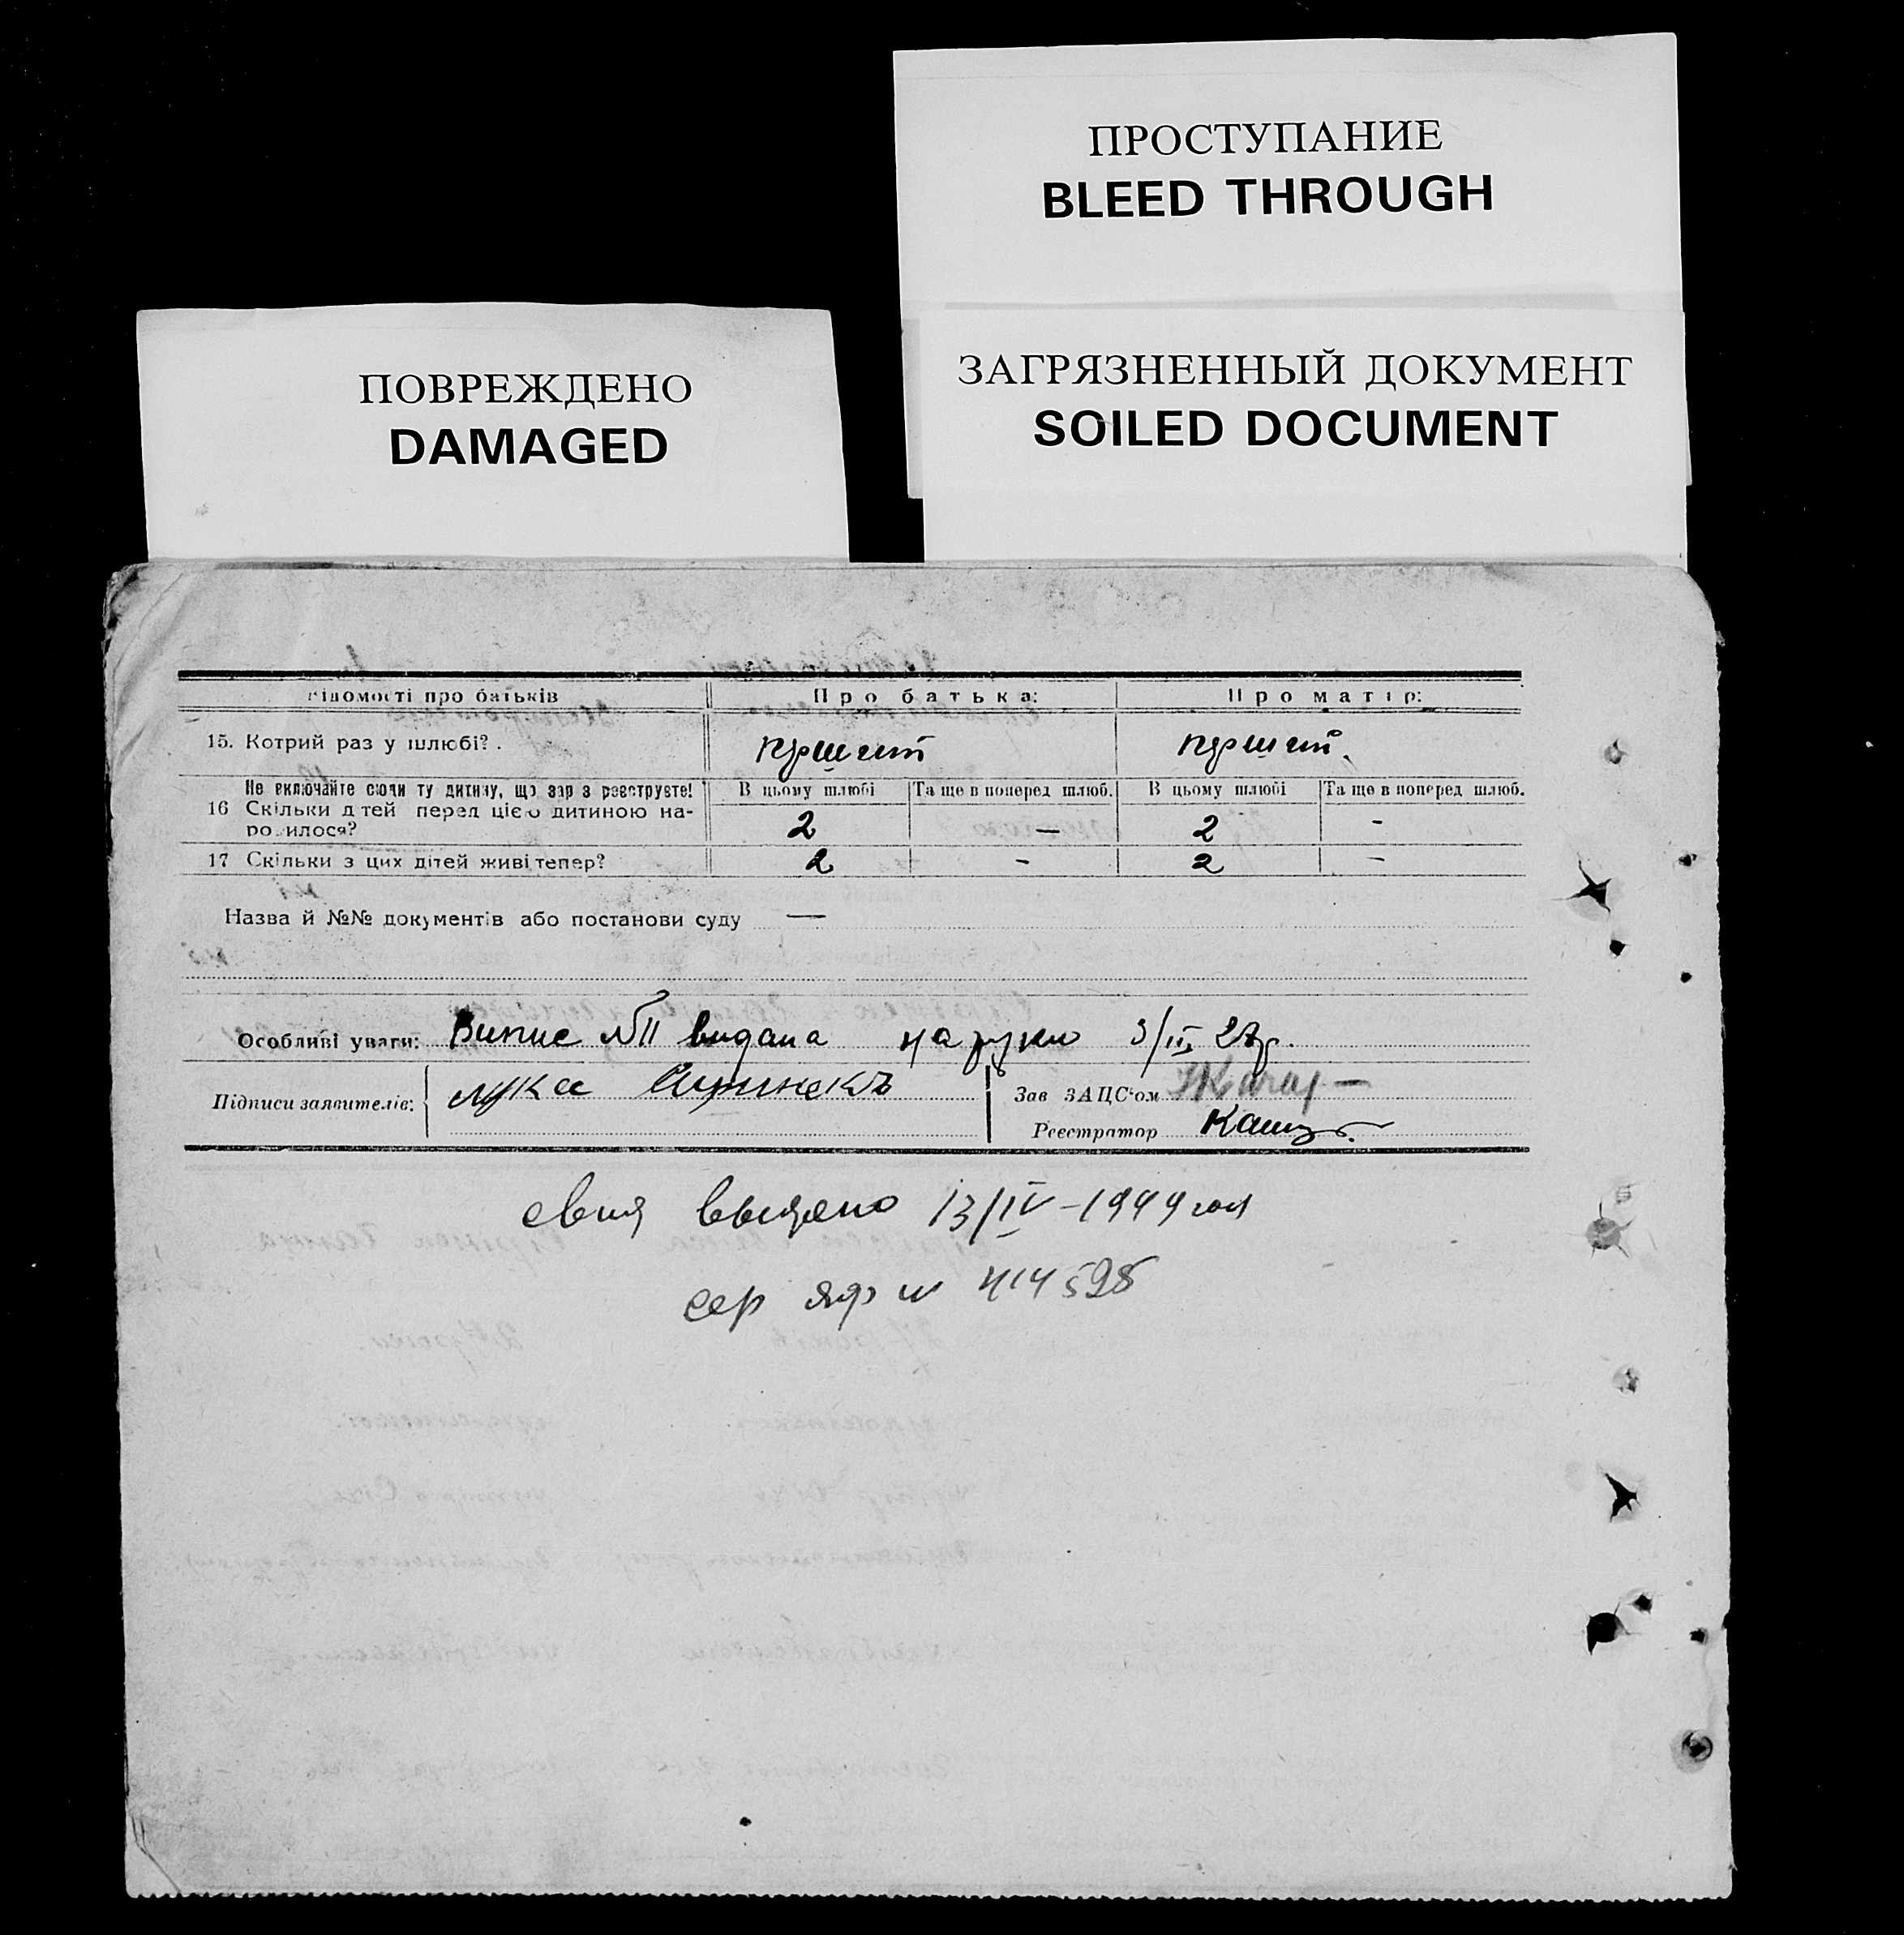 ПРОСТУПАНИЕ
BLEED THROUGH
ЗАГРЯЗНЕННЫЙ ДОКУМЕНТ
SOILED DOCUMENT
ПОВРЕЖДЕНО
DAMAGED
Відомості про батьків Про батька: Про матір:
15. Котрий раз у шлюбі? . перший перший
Не включайте сюди ту дитину, що зараз реєструєте! В цьому шлюбі Та ще в поперед шлюб. В цьому шлюбі Та ще в поперед шлюб.
16 Скільки дітей перед цією дитиною на-
родилося? 2 — 2 -
17 Скільки з цих дітей живі тепер? 2 - 2 -
Назва й №№ документів або постанови суду —
Особливі уваги: Випис №11 видана на руки 3/II 27р.
Підписи заявителів: Лука
Зав ЗАЦС'ом
Реєстратор
выдано 13/IV-1949 года
сер № 414598